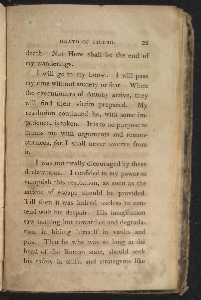 DEATH OF CICERO. 25
death. No: Here shall be the end of
my wanderings.
I will go to my house. I will pass
my time without anxiety or fear. When
the executioners of Antony arrive, they
will find their victim prepared. My
resolution continued he, with some im-
patience, is taken. It is to no purpose to
harass me with arguments and remon-
strances, for I shall never swerve from
it.
I was not totally discouraged by these
declarations. I confided in my power to
vanquish this resolution, as soon as the
means of escape should be provided.
Till then it was indeed useless to con-
tend with his despair. His imagination
saw nothing but cowardice and degrada-
tion, in hiding himself in vaults and
pits. That he who was so long at the
head of the Roman state, should seek
his safety in shifts and stratagems like